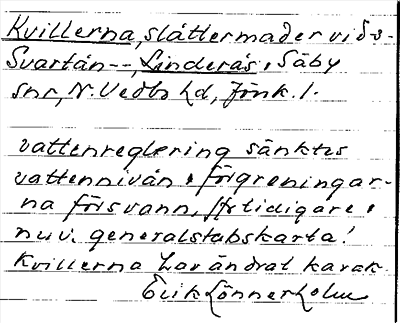 Kvillerna, slåttermader vid s-
Svartån--, Linderås, Säby
snr, N. Vedbo hd, Jönk. l.
vattenreglering sänktes
vattennivån, förgreningar-
na försvann, jfr tidigare,
nuv. generalstabskarta!
Kvillerna har ändrat karak
Erik Lönnerholm